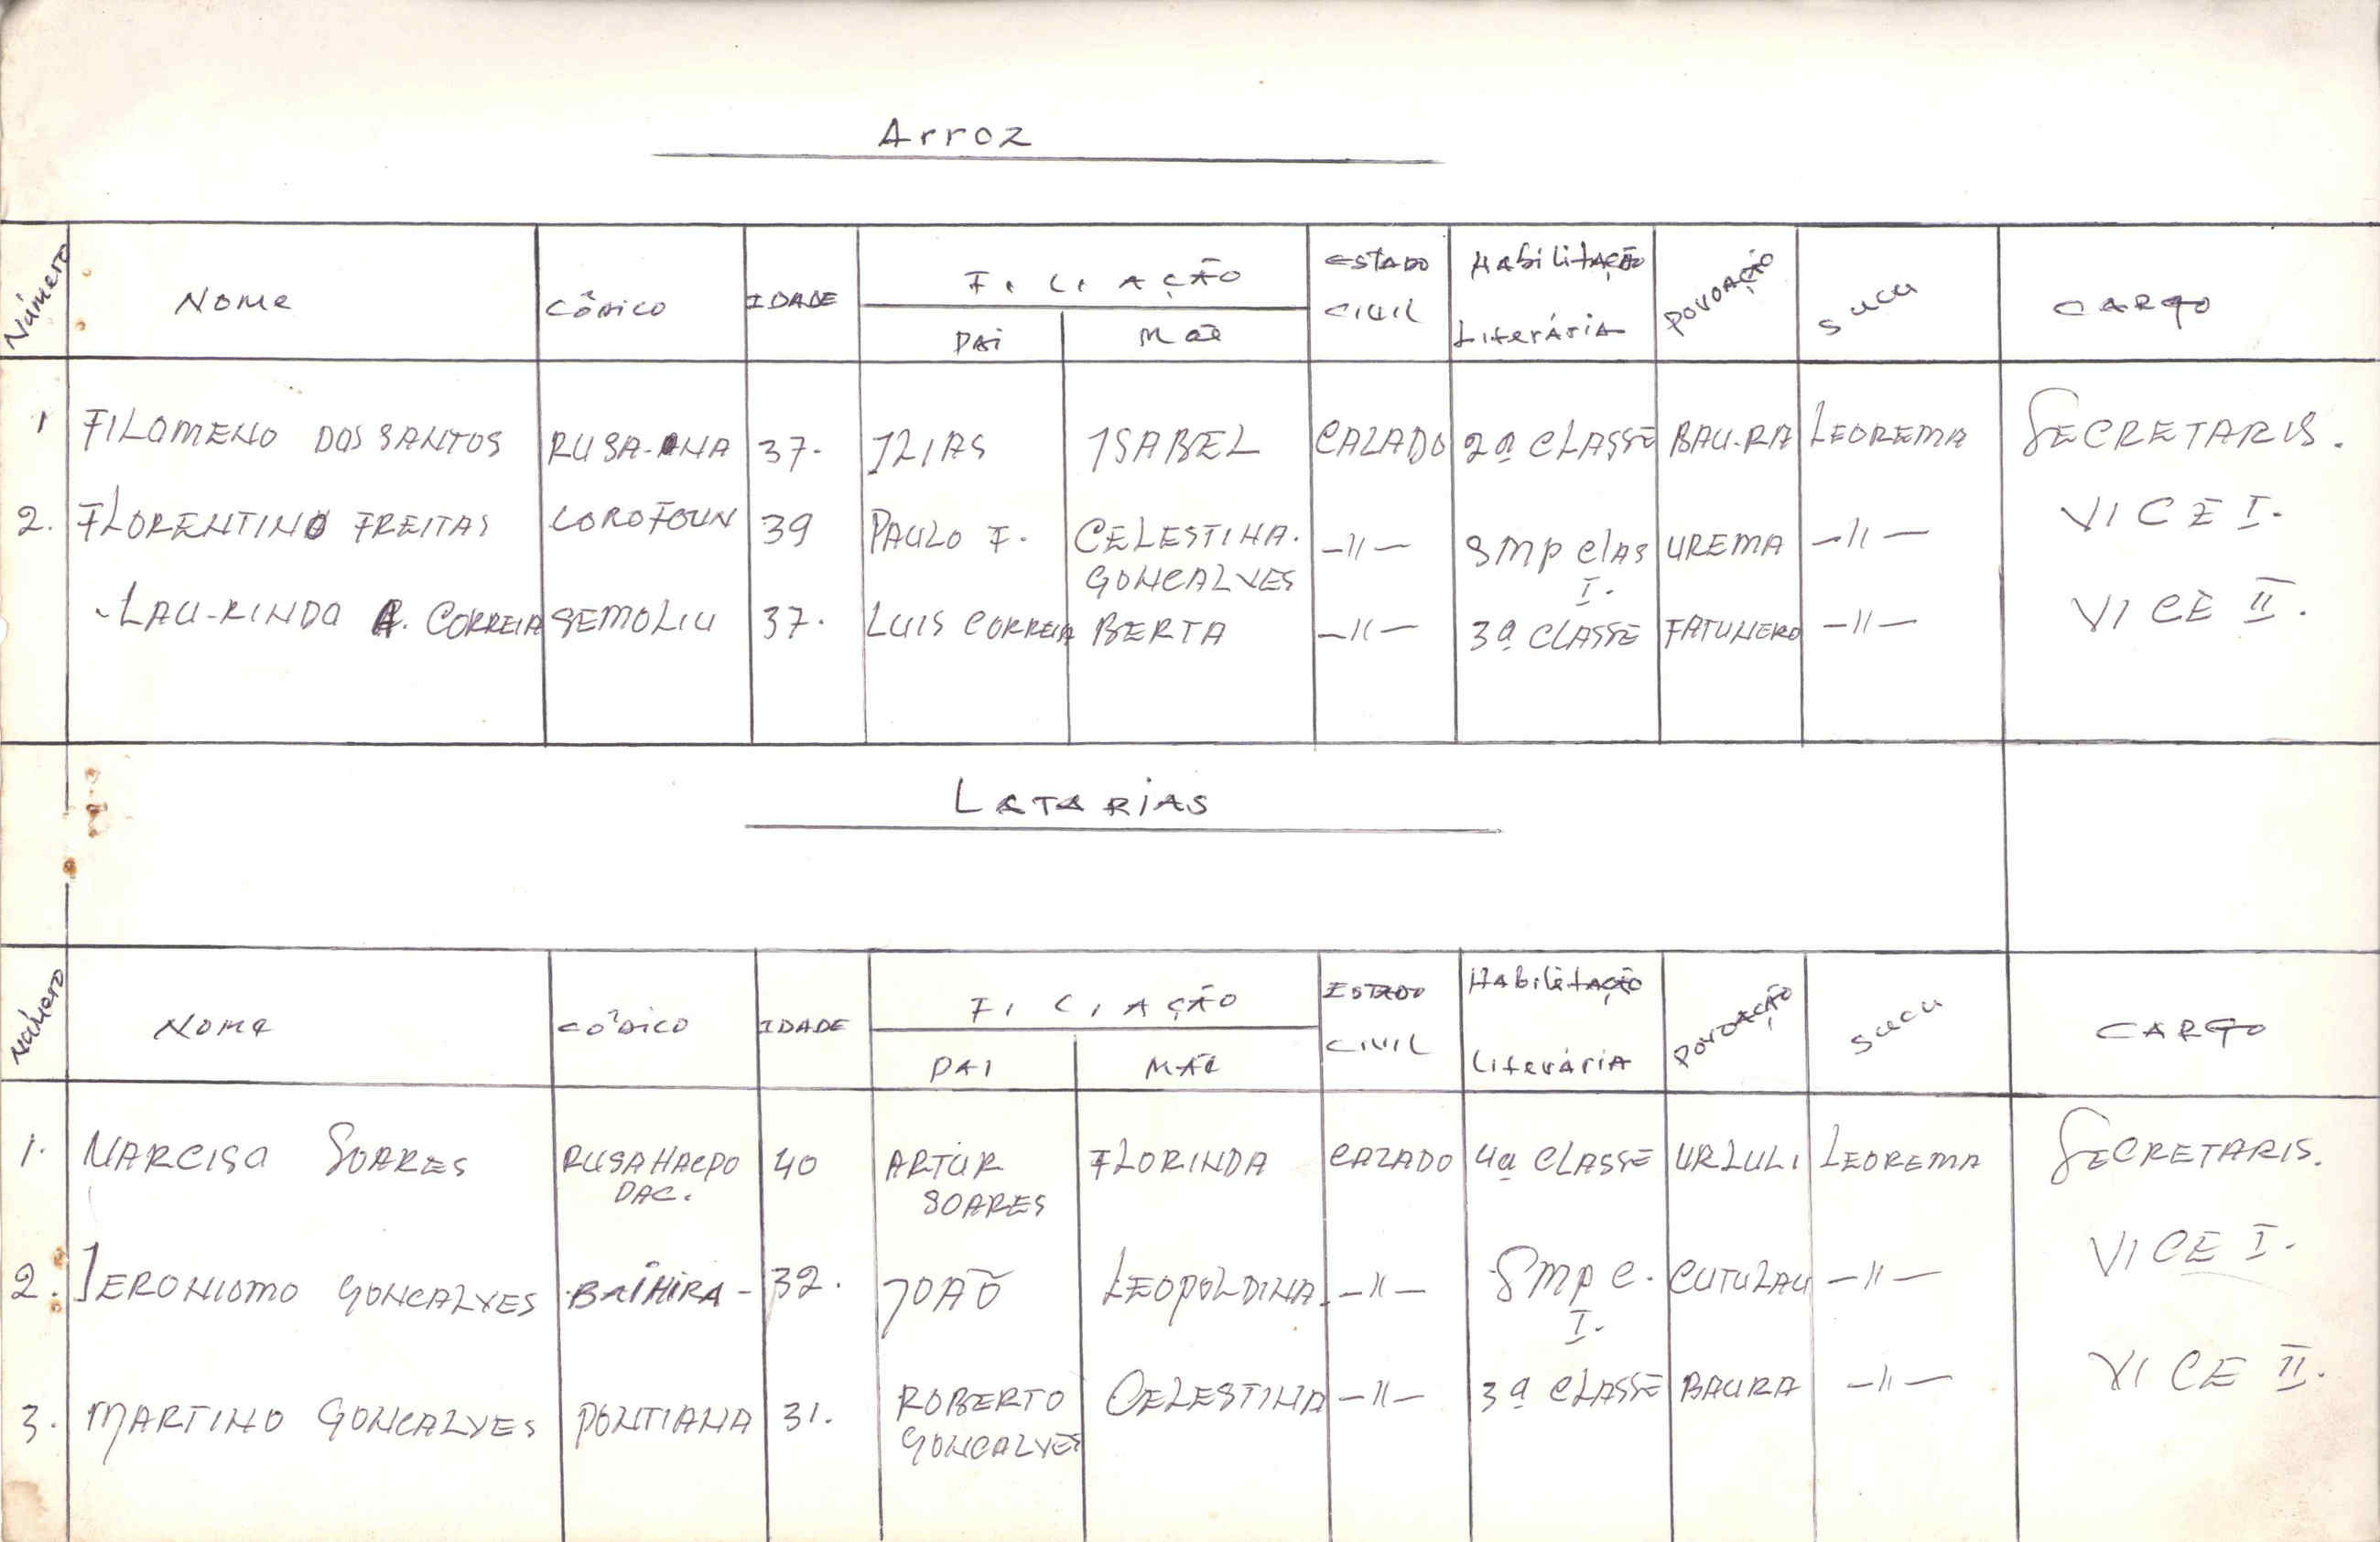 Arroz
Número Nome Côdico IDADE FiLiAÇÃO Pai Mãe Estado Civil Habilitação Literária Povoação Sucu CARgo
1 FILOMENO DOS SANTOS RUSA-ANA 37. ILIAS ISABEL CAZADO 2ª CLASSE BAU-RA LEOREMA SECRETARIS.
2. FLORENTINO FREITAS LOROFOUN 39 PAULO F. CELESTINA. GONCALVES —〃— SMP clAS I. UREMA —〃— VICE I.
LAU-RINDO A. CORREIA SEMOLIU 37. LUIS CORREIA BERTA —〃— 3ª CLASSE FATUNERO —〃— VICE II.
LATARIAS
Número Nome CóDico IDADE FiLiAÇÃO PAI MÃE ESTADO CIVIL Habilitação Literária Povoação Sucu CARGO
1. NARCISO SOARES RUSAHACPO DAC. 40 ARTUR SOARES FLORINDA CAZADO 4ª CLASSE URLULI LEOREMA SECRETARIS.
2. JERONIOMO GONCALVES BAÍHIRA- 32. JOÃO LEOPOLDINA. —〃— SMP C. I. CUTULAU —〃— VICE I.
3. MARTINO GONCALVES PONTIANA 31. ROBERTO GONCALVES CELESTINA —〃— 3ª CLASSE BAURA —〃— VICE II.